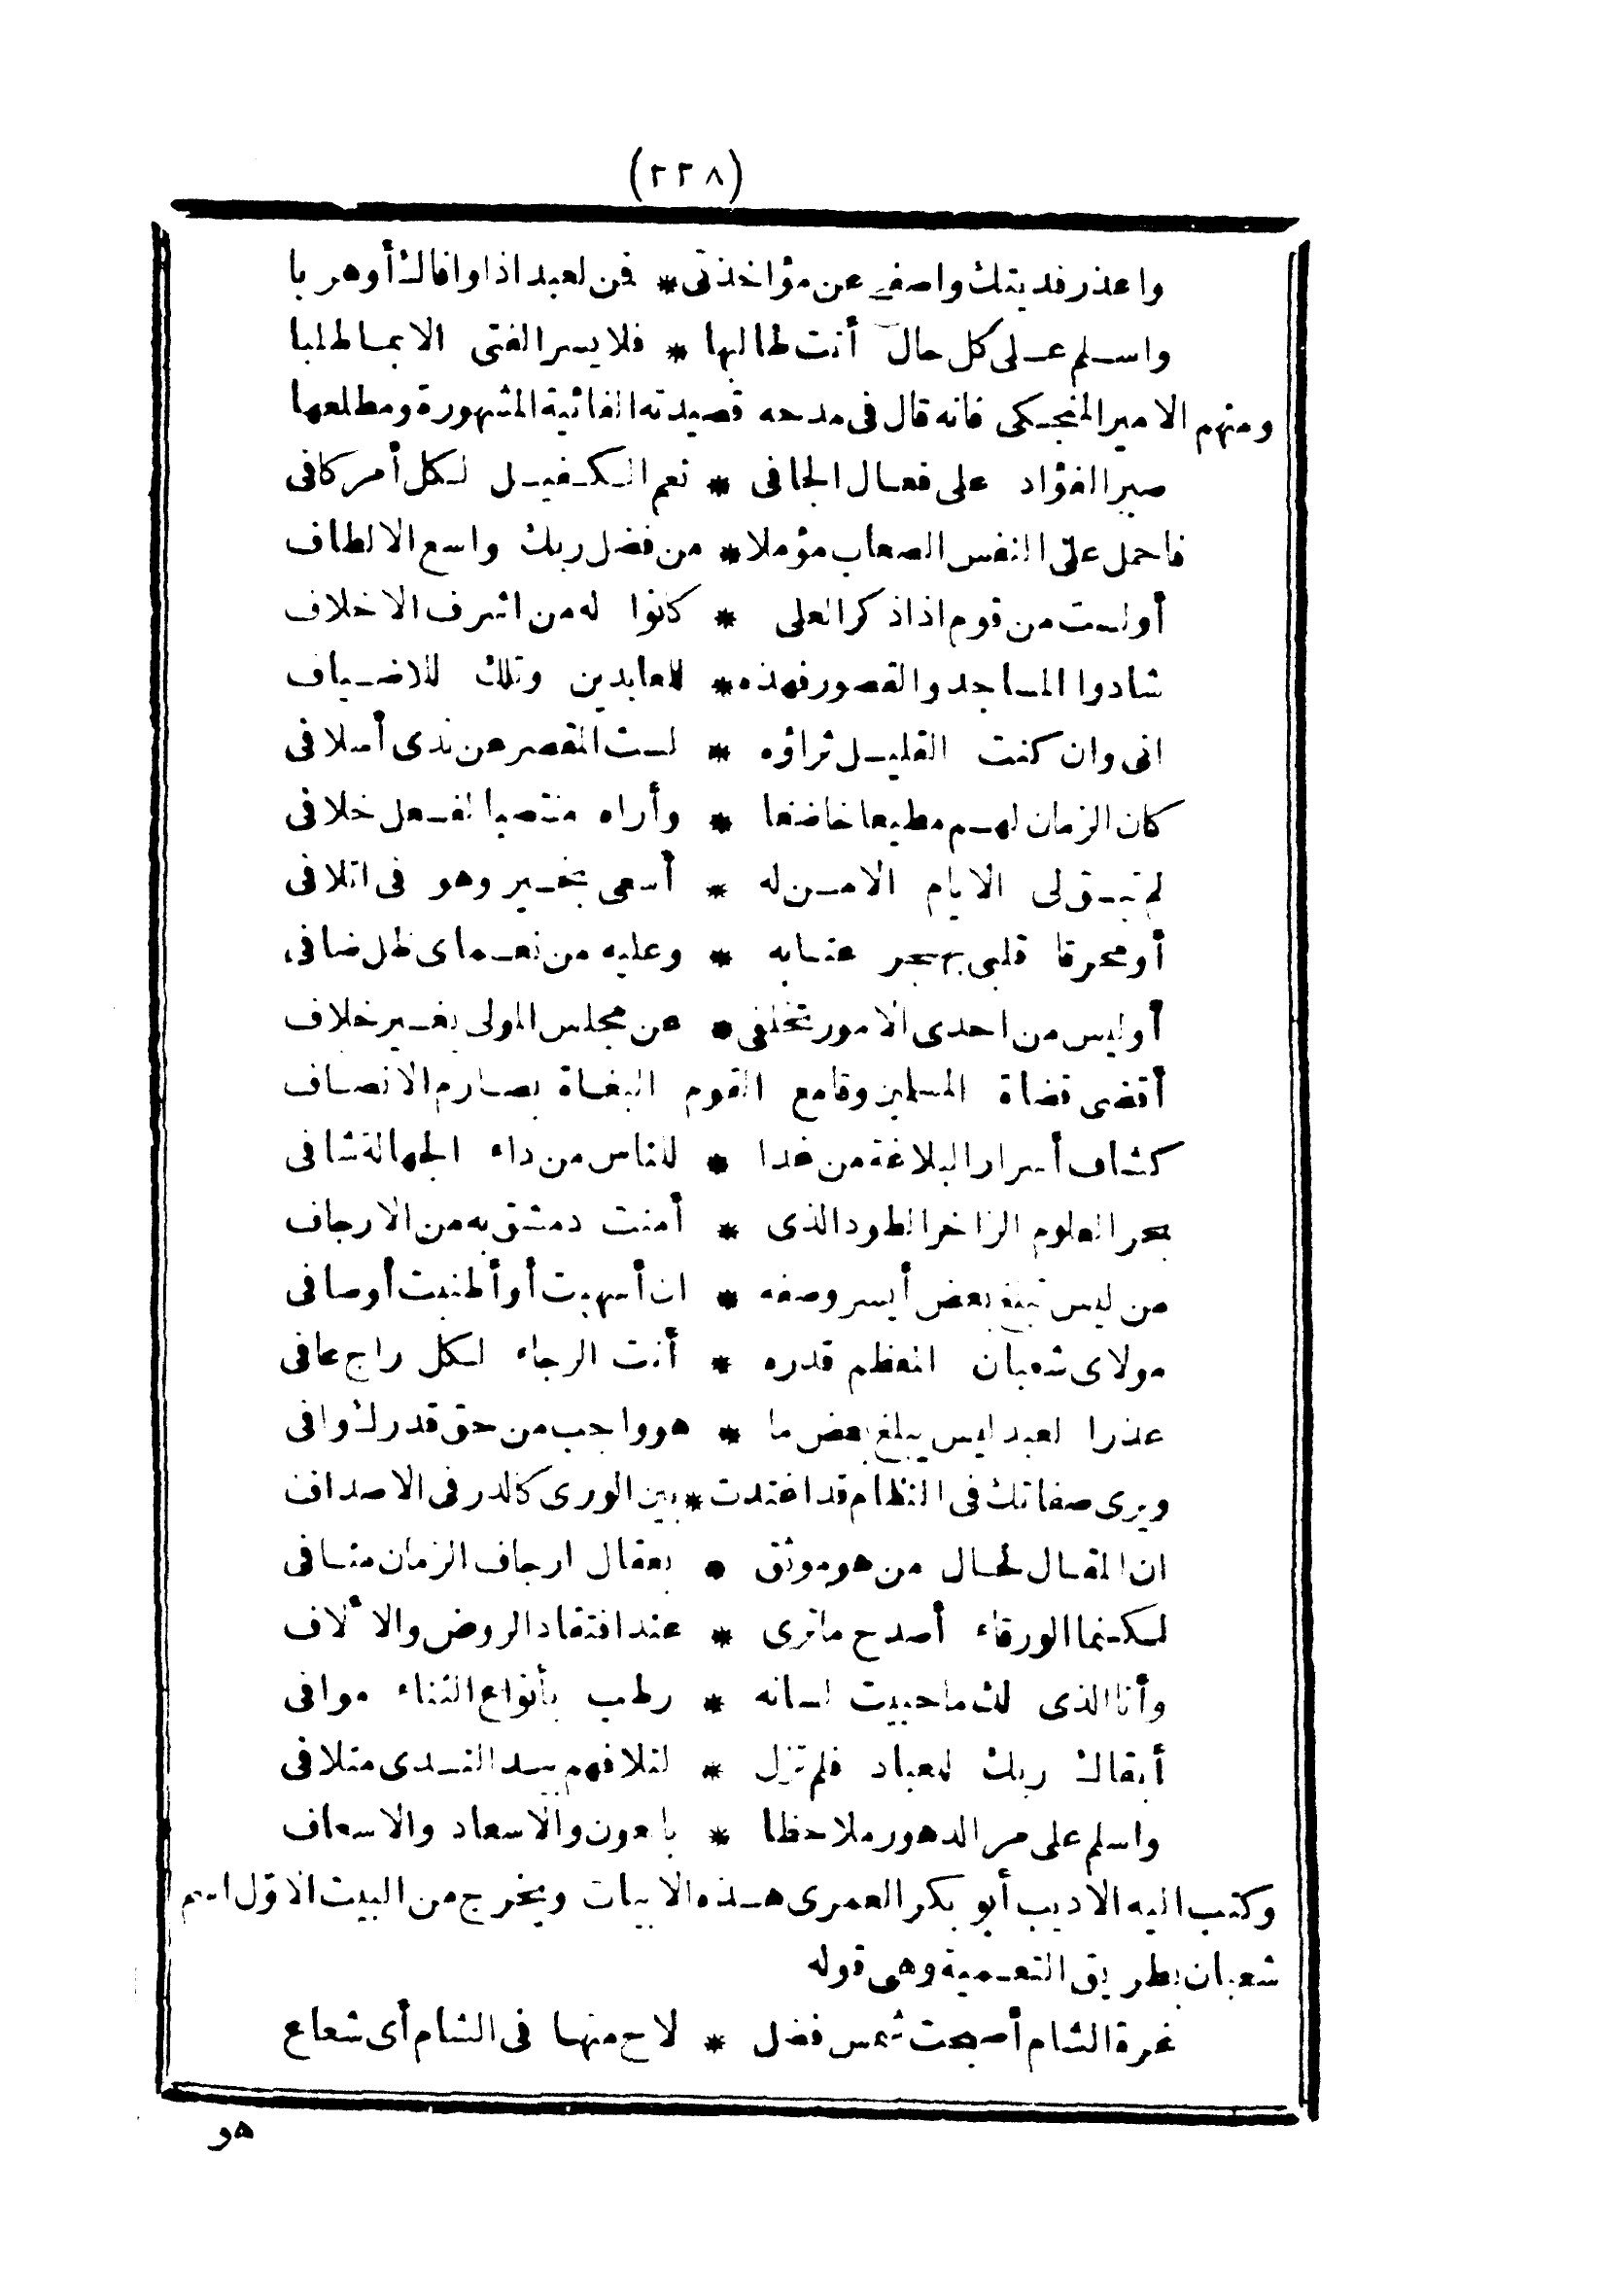 (٢٢٨)
واعذر فديتك واصفح عن مؤاخذتى * فمن لعبد اذا وافاك أوهربا
واسلم على كل حال أنت طالبها * فلا يسر الفتى الا بما طلبا
ومنهم الامير المنجكى فانه قال فى مدحه قصيدته الفائية المشهورة ومطلعها
صبر الفؤاد على فعال الجافى * نعم الكفيل لكل أمر كافى
فاحمل على النفس الصعاب مؤملا * من فضل ربك واسع الالطاف
أولست من قوم اذا ذكر العلى * كانوا له من اشرف الاخلاف
شادوا المساجد والقصور فهذه * للعابدين وتلك للاضياف
انى وان كنت القليل ثراؤه * لست المقصر عن ندى أسلافى
كان الزمان لهم مطيعا خاضعا * وأراه منتصبا لفعل خلافى
لم تبق لى الايام الامن له * أسعى بخير وهو فى اتلافى
أو محرقا قلبى بهجر عتابه * وعليه من نعماى ظل ضافى
أوليس من احدى الامور تخلفى * عن مجلس المولى بغير خلاف
أقضى قضاة المسلمين وقامع القوم البغاة بصارم الانصاف
كشاف أسرار البلاغة من غدا * للناس من داء الجهالة شافى
بحر العلوم الزاخر الطود الذى * أمنت دمشق به من الارجاف
من ليس تبلغ بعض أيسر وصفه * ان أسهبت أو أطنبت أوصافى
مولاى شعبان المعظم قدره * أنت الرجاء لكل راج عافى
عذرا لعبد ليس يبلغ بعض ما * هو واجب من حق قدرك وافى
ويرى صفاتك فى النظام قد اغتدت * بين الورى كالدر فى الاصداف
ان المقال لحال من هو موثق * بعقال ارجاف الزمان منافى
لكنما الورقاء أصدح ماترى * عند افتقاد الروض والا ٔلاف
وأنا الذى لك ما حييت لسانه * رطب بأنواع الثناء موافى
أبقاك ربك للعباد فلم تزل * لتلافهم بيد الندى متلافى
واسلم على مر الدهور ملاحظا * بالعون والاسعاد والاسعاف
وكتب اليه الاديب أبو بكر العمرى هذه الابيات ويخرج من البيت الاول اسم
شعبان بطريق التعمية وهى قوله
غرة الشام أصبحت شمس فضل * لاح منها فى الشام أى شعاع
هو